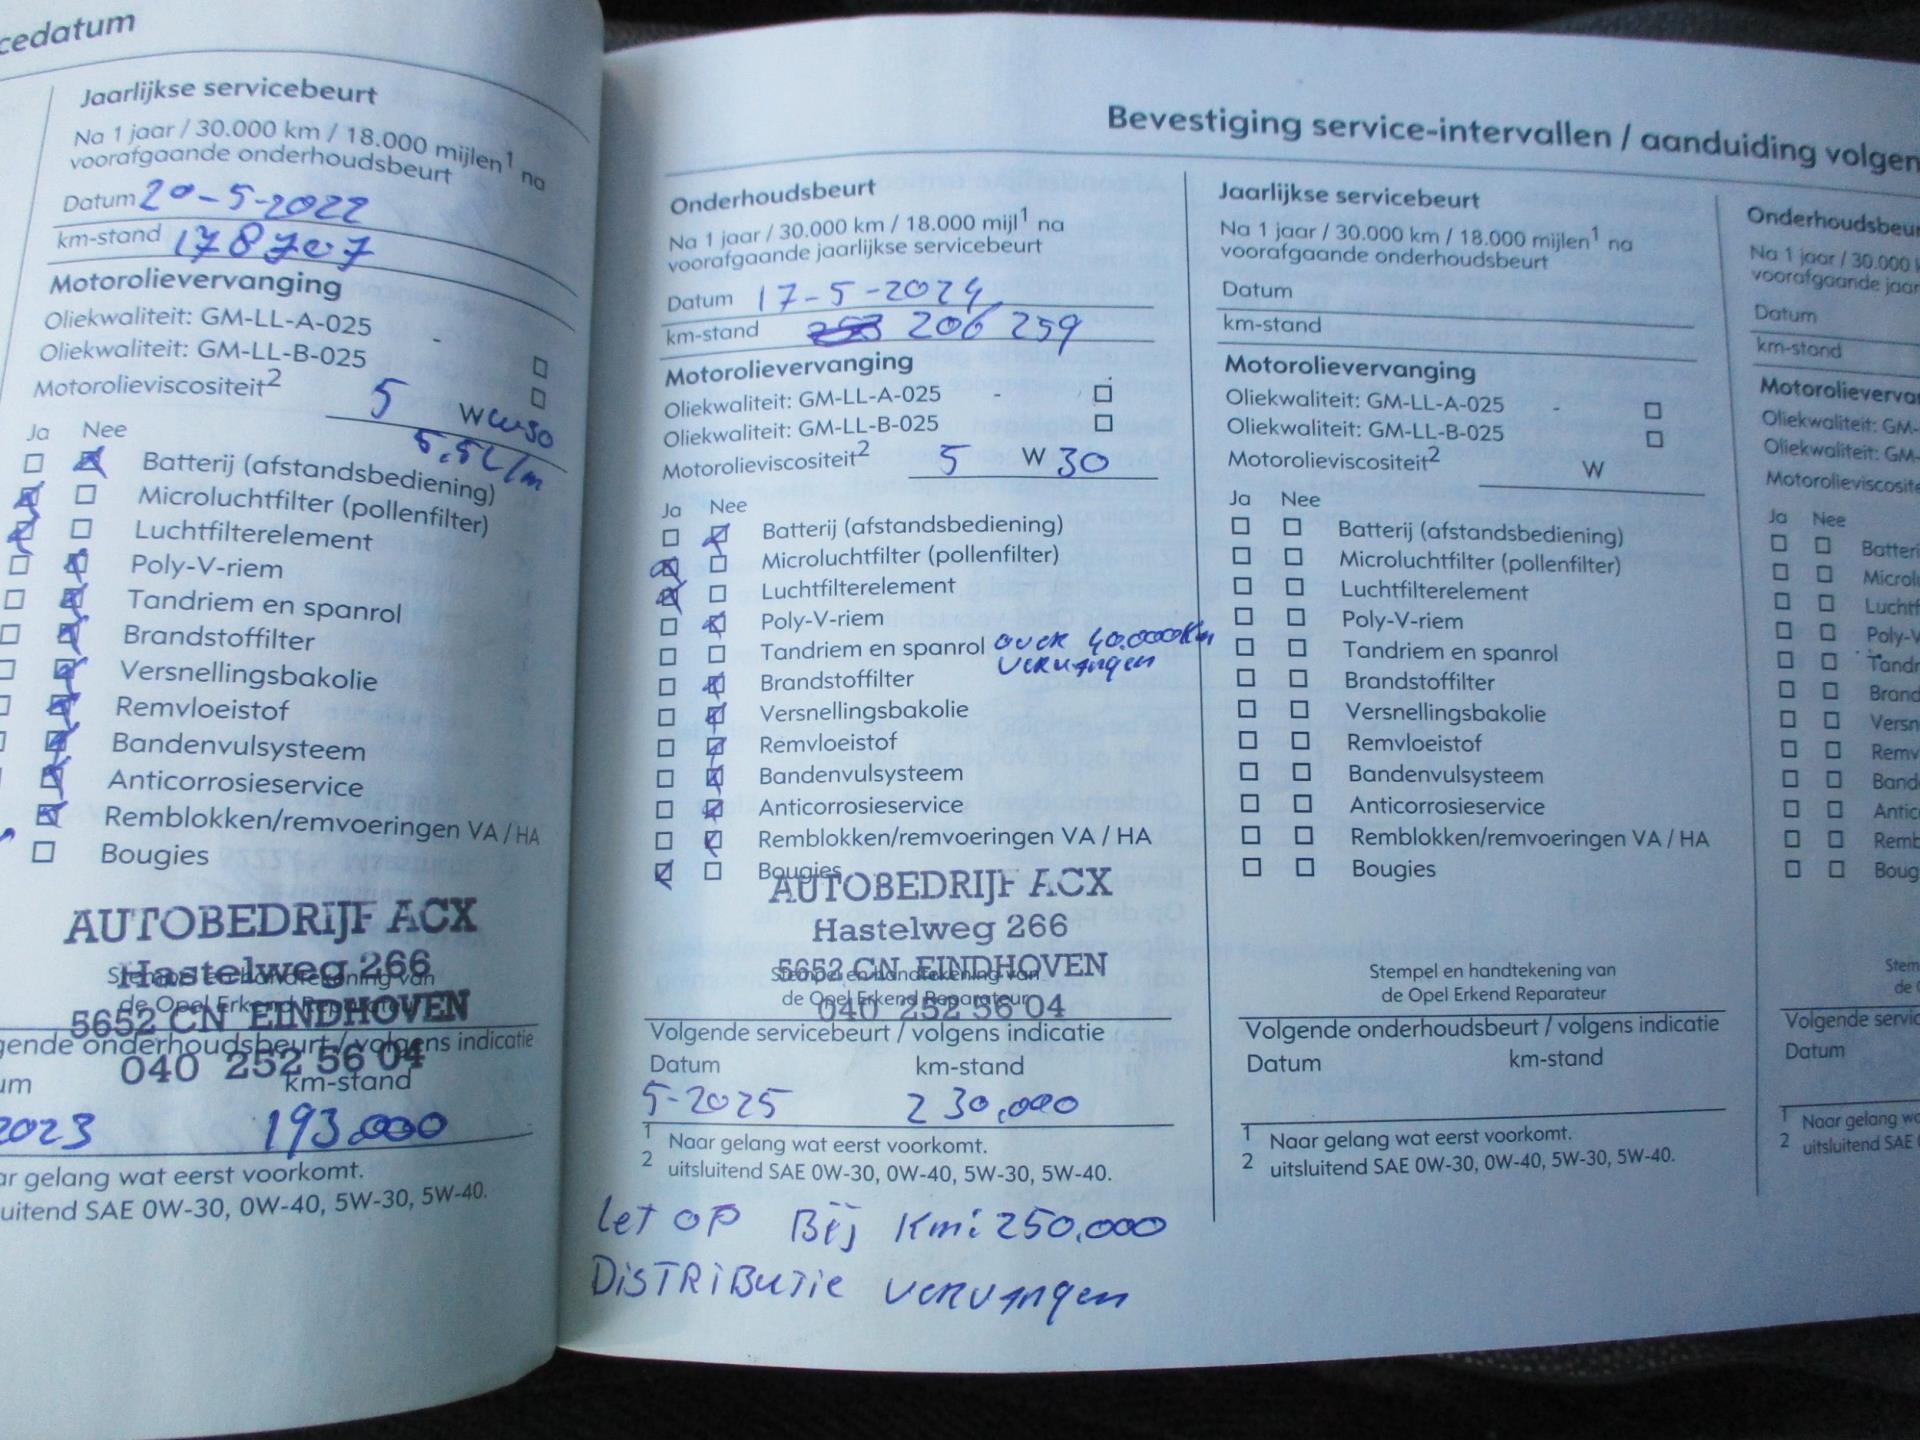 cedatum
Jaarlijkse servicebeurt
Na 1 jaar / 30.000 km / 18.000 mijlen1 na
voorafgaande onderhoudsbeurt
Datum 20-5-2022
km-stand 178707
Motorolievervanging
Oliekwaliteit: GM-LL-A-025 -
Oliekwaliteit: GM-LL-B-025
Motorolieviscositeit2 5 W
5,5L/m
Ja Nee
Batterij (afstandsbediening)
Microluchtfilter (pollenfilter)
Luchtfilterelement
Poly-V-riem
Tandriem en spanrol
Brandstoffilter
Versnellingsbakolie
Remvloeistof
Bandenvulsysteem
Anticorrosieservice
Remblokken/remvoeringen VA / HA
Bougies
AUTOBEDRIJF ACX
Hastelweg 266
Stempel en handtekening van
de Opel Erkend Reparateur
5652 CN EINDHOVEN
gende onderhoudsbeurt / volgens indicatie
040 252 56 04
um km-stand
2023 193.000
ar gelang wat eerst voorkomt.
uitend SAE 0W-30, 0W-40, 5W-30, 5W-40.
Bevestiging service-intervallen / aanduiding volgen
Onderhoudsbeurt
Na 1 jaar / 30.000 km / 18.000 mijl1 na
voorafgaande jaarlijkse servicebeurt
Datum 17-5-2024
km-stand 206 259
Motorolievervanging
Oliekwaliteit: GM-LL-A-025 -
Oliekwaliteit: GM-LL-B-025
Motorolieviscositeit2 5 W 30
Ja Nee
Batterij (afstandsbediening)
Microluchtfilter (pollenfilter)
Luchtfilterelement
Poly-V-riem
Tandriem en spanrol over 40.000Km
vervangen
Brandstoffilter
Versnellingsbakolie
Remvloeistof
Bandenvulsysteem
Anticorrosieservice
Remblokken/remvoeringen VA / HA
Bougies
AUTOBEDRIJF ACX
Hastelweg 266
5652 CN EINDHOVEN
Stempel en handtekening van
de Opel Erkend Reparateur
040 252 56 04
Volgende servicebeurt / volgens indicatie
Datum km-stand
5-2025 230.000
1 Naar gelang wat eerst voorkomt.
2 uitsluitend SAE 0W-30, 0W-40, 5W-30, 5W-40.
Let OP Bij Km: 250.000
DISTRIBUTIE vervangen
Jaarlijkse servicebeurt
Na 1 jaar / 30.000 km / 18.000 mijlen1 na
voorafgaande onderhoudsbeurt
Datum
km-stand
Motorolievervanging
Oliekwaliteit: GM-LL-A-025 -
Oliekwaliteit: GM-LL-B-025
Motorolieviscositeit2 W
Ja Nee
Batterij (afstandsbediening)
Microluchtfilter (pollenfilter)
Luchtfilterelement
Poly-V-riem
Tandriem en spanrol
Brandstoffilter
Versnellingsbakolie
Remvloeistof
Bandenvulsysteem
Anticorrosieservice
Remblokken/remvoeringen VA / HA
Bougies
Stempel en handtekening van
de Opel Erkend Reparateur
Volgende onderhoudsbeurt / volgens indicatie
Datum km-stand
1 Naar gelang wat eerst voorkomt.
2 uitsluitend SAE 0W-30, 0W-40, 5W-30, 5W-40.
Onderhoudsbeur
Na 1 jaar / 30.000 k
voorafgaande jaar
Datum
km-stand
Motorolieverva
Oliekwaliteit: GM-
Oliekwaliteit: GM-L
Motorolieviscosite
Ja Nee
Batteri
Microlu
Luchtf
Poly-V
Tandr
Brand
Versn
Remv
Band
Antic
Remb
Boug
Stem
de O
Volgende servic
Datum
1 Naar gelang wa
2 uitsluitend SAE 0